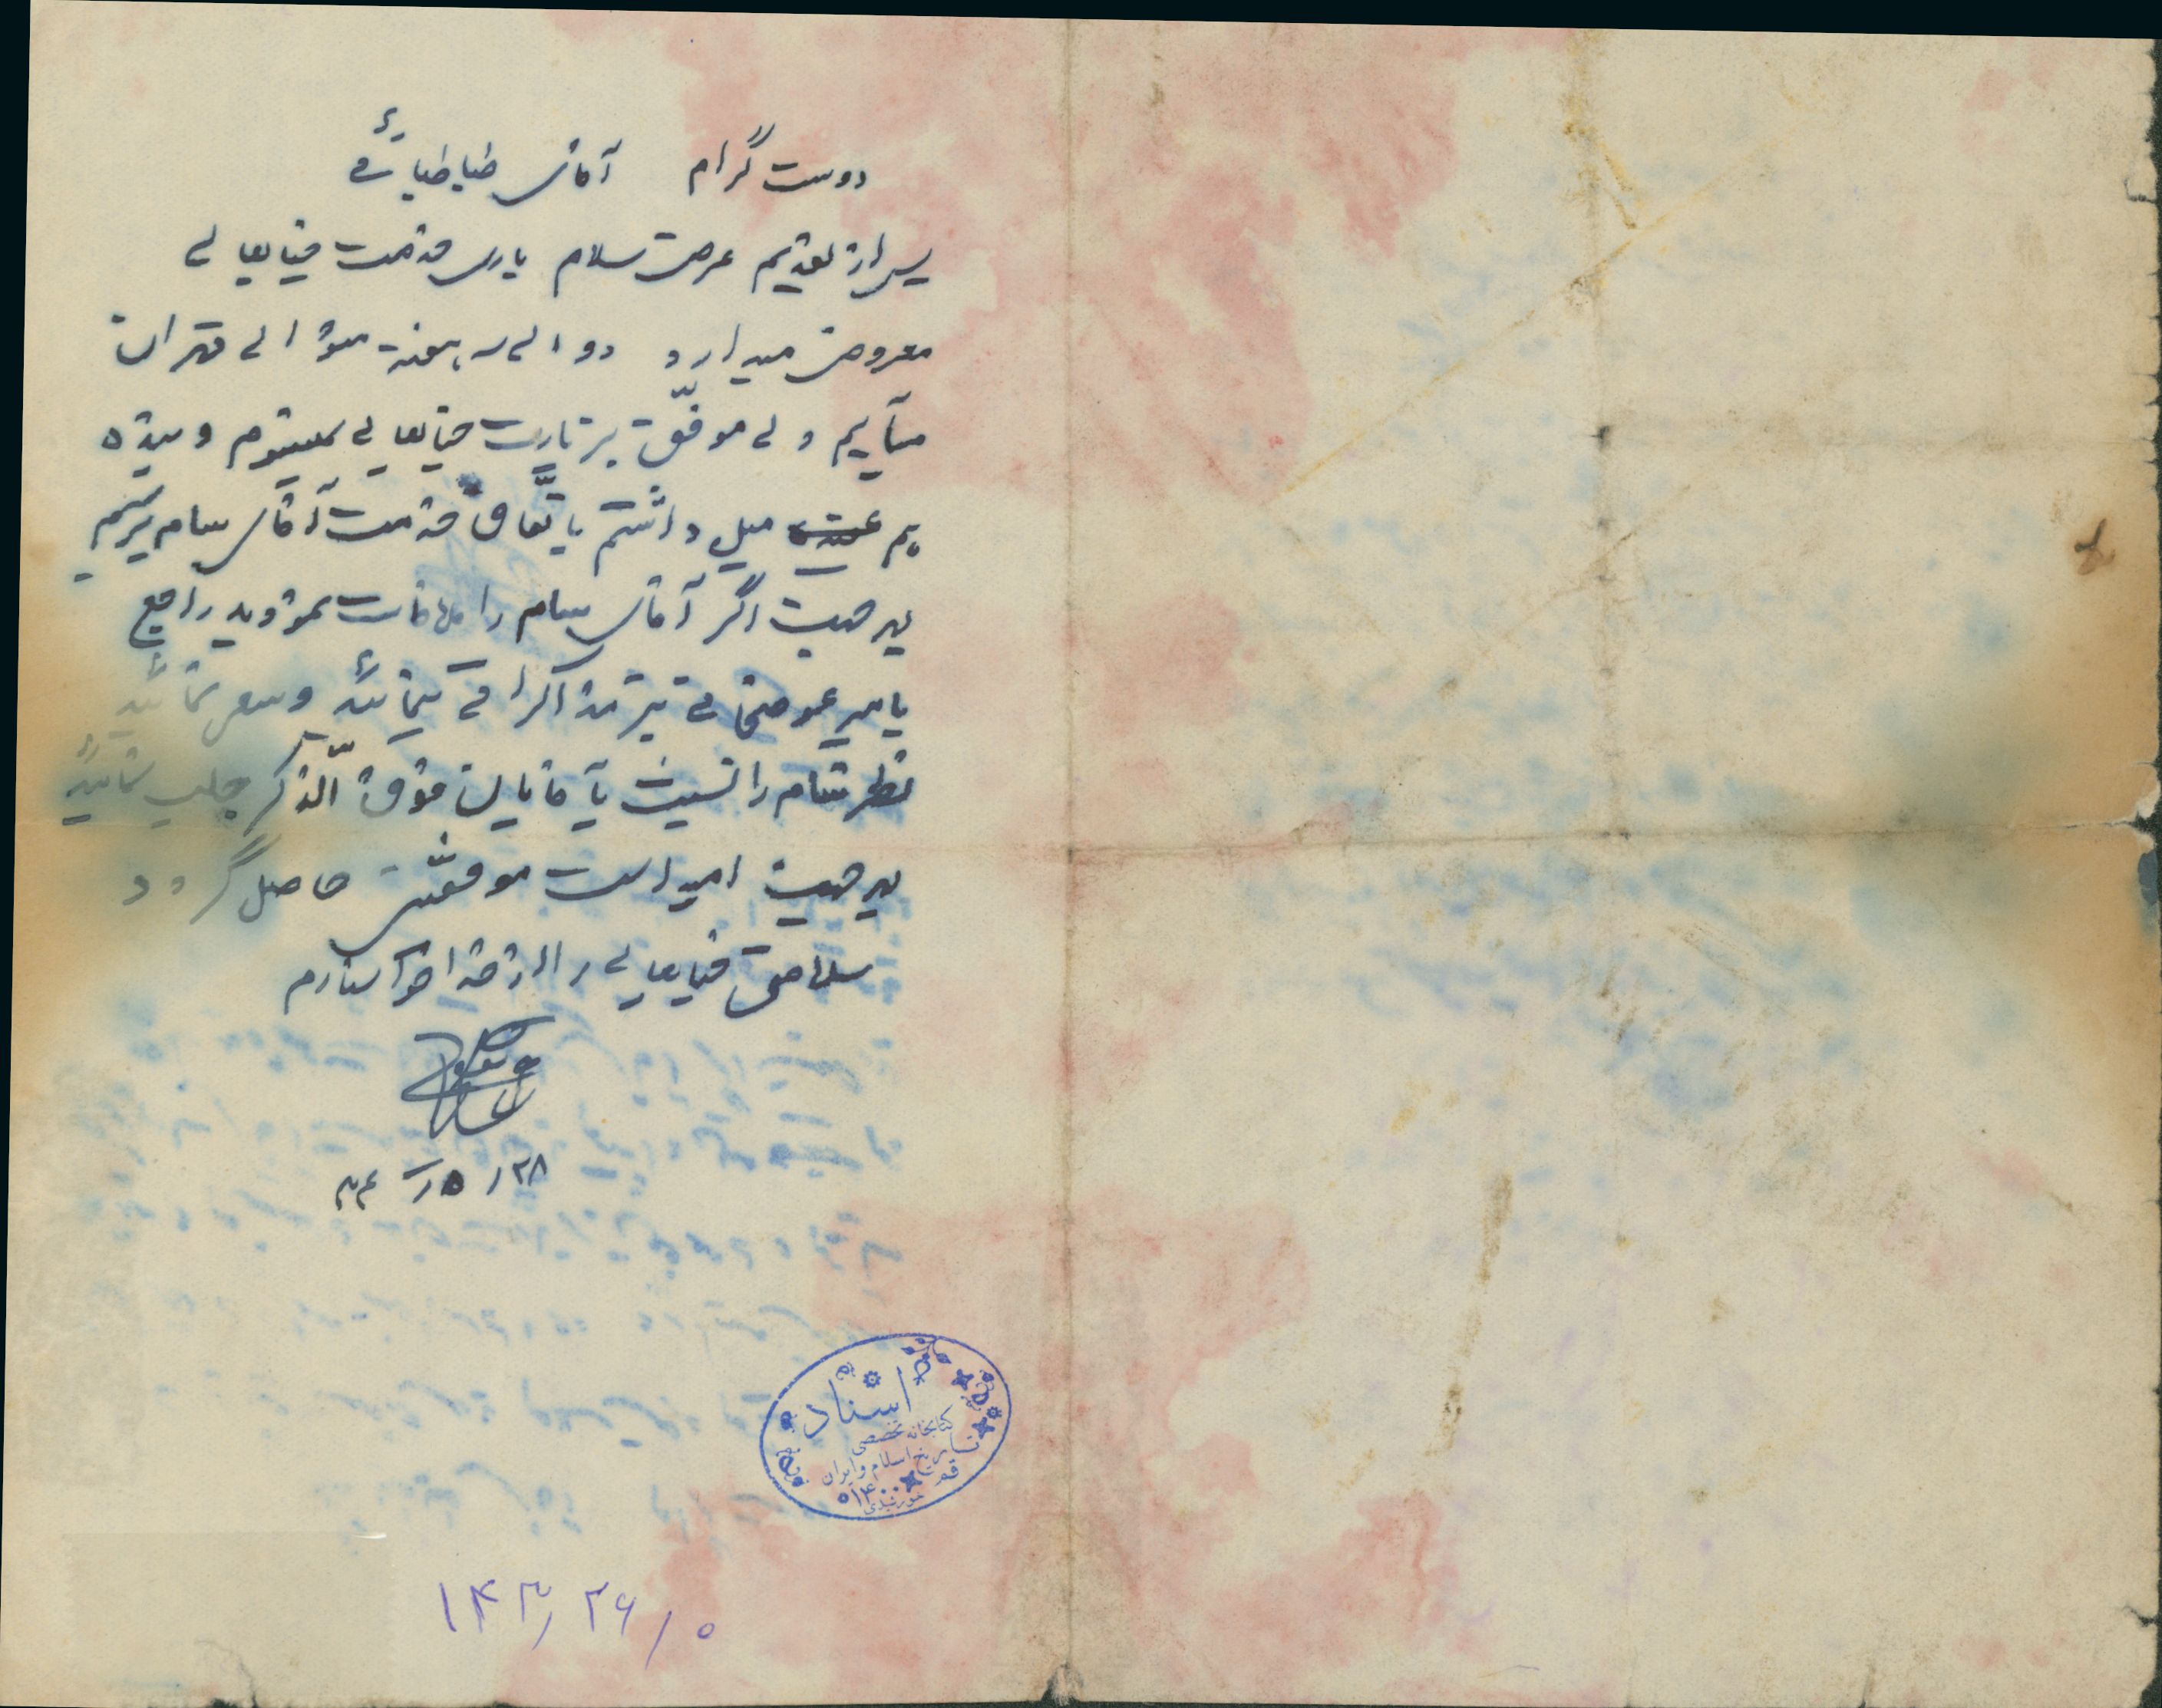 دوست گرام آقای طباطبائی
پس از تقدیم عرض سلام باری خدمت جنابعالی
معروض میدارد دو الی سه هفته متوالی تهران
میآیم ولی موفّق بزیارت جنابعالی نمیشوم و بنده
هم میل داشتم باتّفاق خدمت آقای سام برسیم
بهر جهت اگر آقای سام را ملاقات نمودید راجع
بامیر عوضخانی نیز مذاکراتی بنمائید و سعی نمائید
نظر سام را نسبت بآقایان فوق الّذکر جلب نمائید
بهر جهت امید است موفقیّت حاصل گردد
سلامتی جنابعالی را از خدا خواستارم
۲۸ / ۵ / ۳۴
اسناد
کتابخانه تخصصی
تاریخ اسلام و ایران
قم
۱۴۳/۲۶/۰